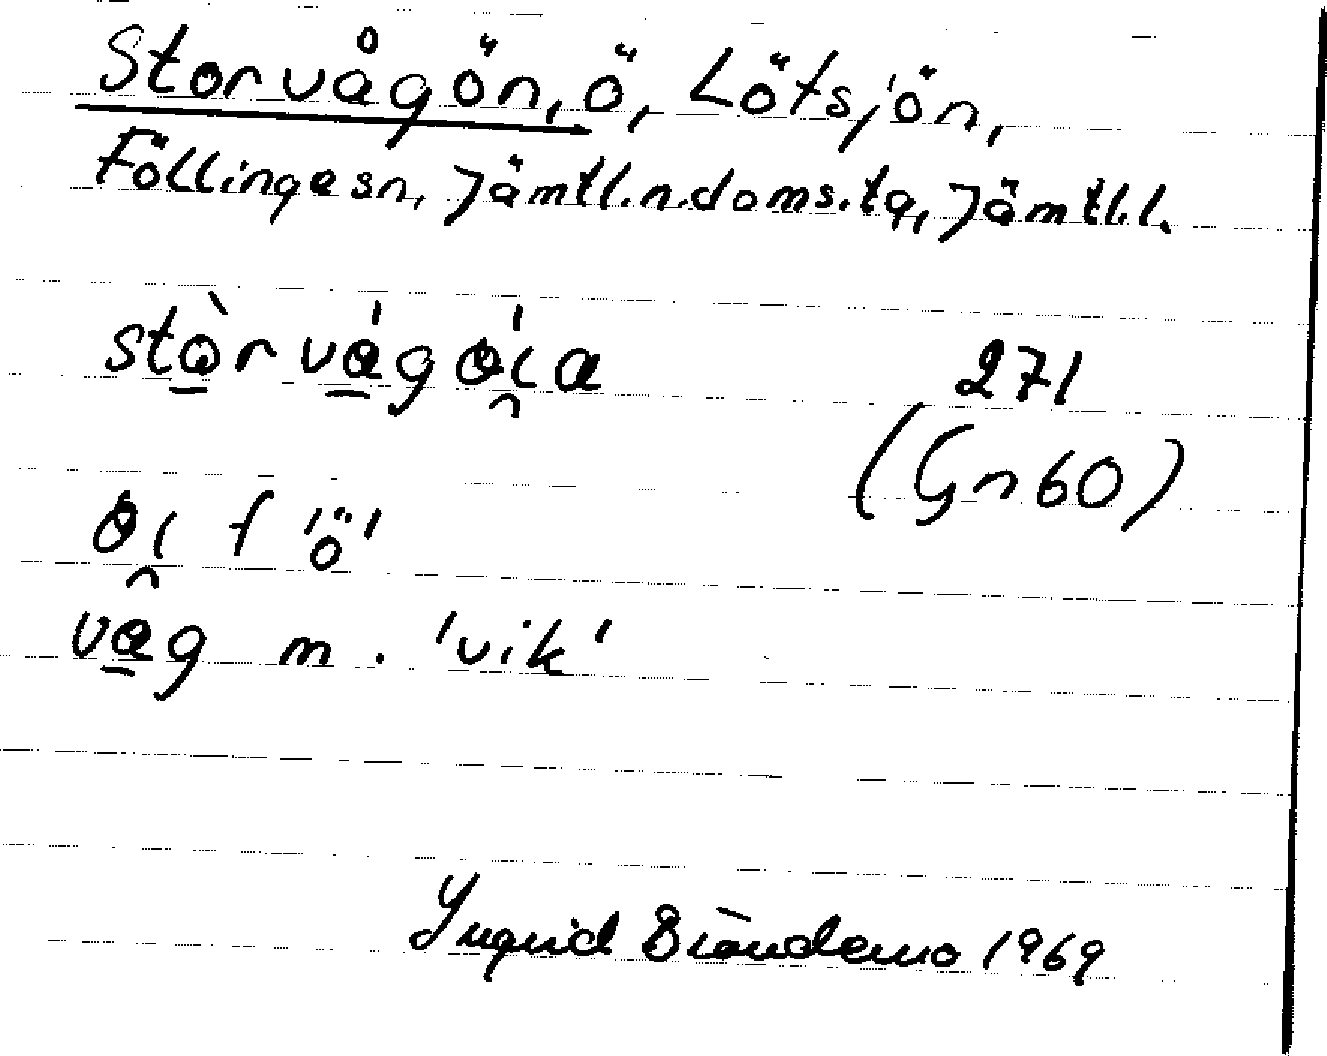 Storvågön, ö, Lötsjön,
Föllinge sn, Jämtl. n. doms. tg, Jämtl. l.
stòrvágɵ́ɩa
271
(Gn 60)
ɵɩ̯ f 'ö'
våg m. 'vik'
Ingrid Brändemo 1969